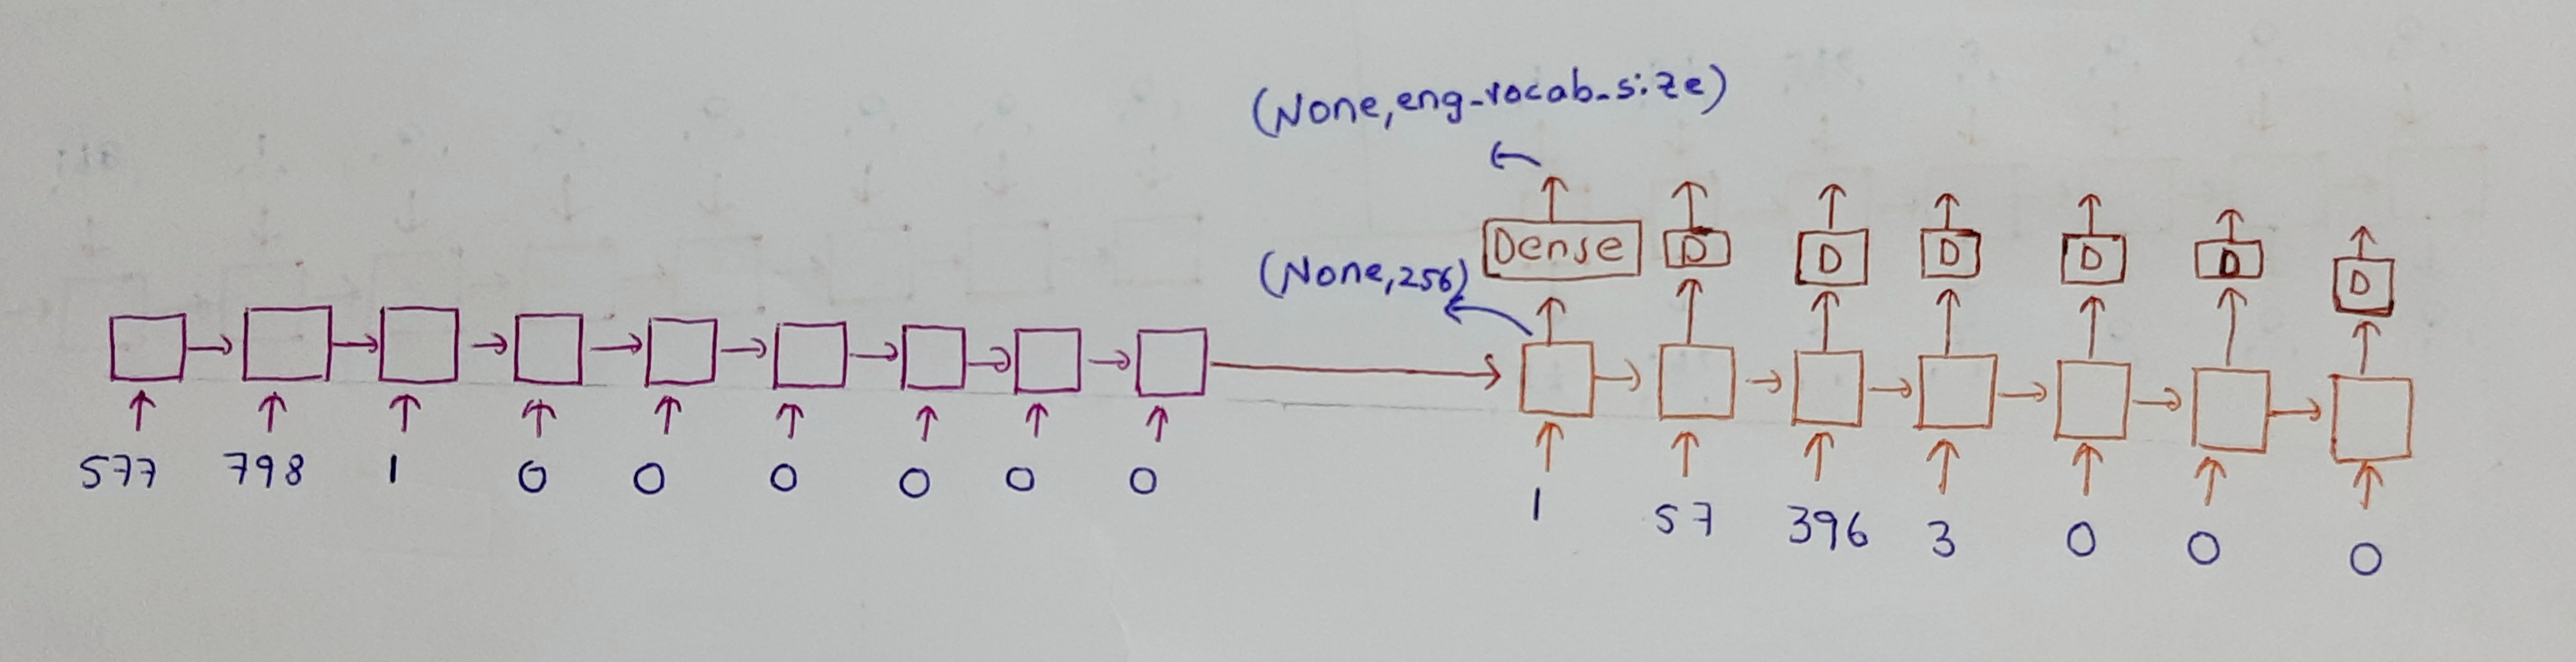 (None,eng_vocab_size)
Dense D D D D D D
(None,256)
577 798 1 0 0 0 0 0 0
1 57 396 3 0 0 0